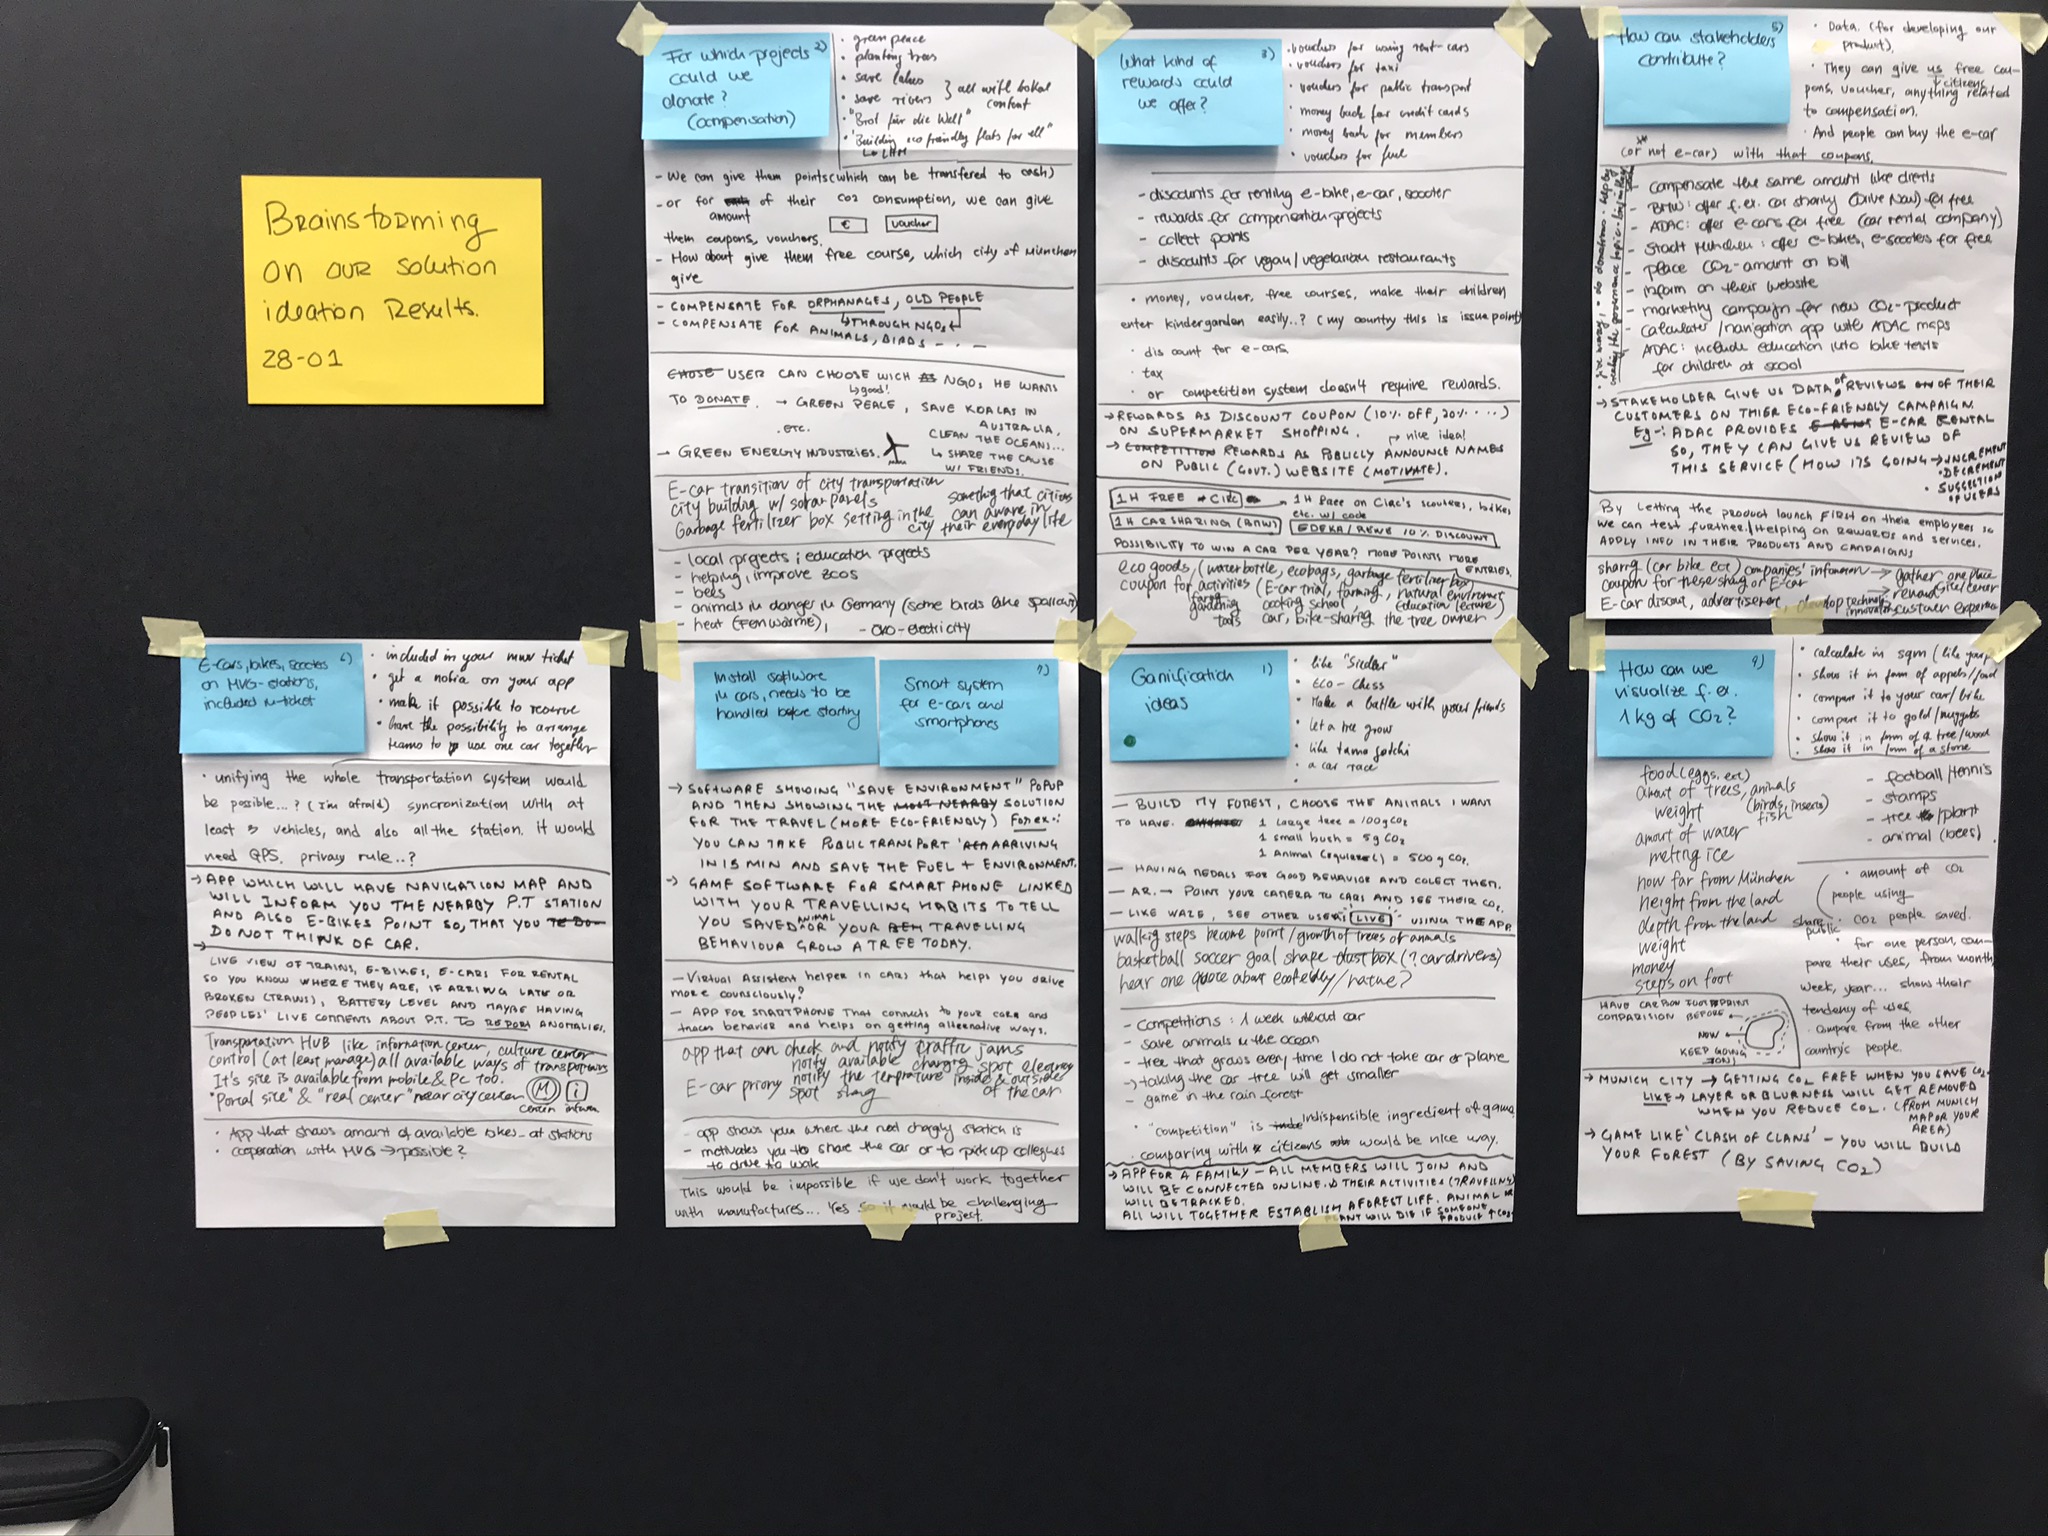 Brainstorming
on our solution
ideation Results.
28-01
For which projects 2)
could we
donate?
(compensation)
• green peace
• planting trees
• save lakes
• save rivers } all with lokal
content
• "Brot für die Welt"
• "Building eco friendly flats for all"
↳ LHM
- We can give them points (which can be transfered to cash)
- or for amount of their CO2 consumption, we can give
€ voucher
them coupons, vouchers.
- How about give them free course, which city of München
give
- COMPENSATE FOR ORPHANAGES, OLD PEOPLE
↳ THROUGH NGOs
- COMPENSATE FOR ANIMALS, BIRDS - . -
CHOSE USER CAN CHOOSE WICH NGOs HE WANTS
↳ good!
TO DONATE. → GREEN PEACE, SAVE KOALAS IN
AUSTRALIA,
.ETC. CLEAN THE OCEANS...
→ GREEN ENERGY INDUSTRIES. ↳ SHARE THE CAUSE
W/ FRIENDS.
E-car transition of city transportation
city building w/ solar panels something that citizens
Garbage fertilizer box setting in the city can aware in their everyday life
- local projects; education projects
- helping, improve zoos
- bees
- animals in danger in Germany (some birds like sparrow)
- heat (Fernwärme), - öko-electricity
What kind of 3)
rewards could
we offer?
• vouchers for using rent-cars
• vouchers for taxi
• vouchers for public transport
• money back for credit cards
• money back for members
• vouchers for fuel
- discounts for renting e-bike, e-car, scooter
- rewards for compensation projects
- collect points
- discounts for vegan/vegetarian restaurants
• money, voucher, free courses, make their children
enter kindergarden easily..? (my country this is issue point)
• discount for e-cars
• tax
• or competition system doesn't require rewards.
→ REWARDS AS DISCOUNT COUPON (10% OFF, 20% ...)
ON SUPERMARKET SHOPPING. → nice idea!
→ COMPETITION REWARDS AS PUBLICLY ANNOUNCE NAMES
ON PUBLIC (GOVT.) WEBSITE (MOTIVATE).
1H FREE → CIRC → 1H free on Circ's scooters, bikes
etc. w/ code
1H CAR SHARING (BMW) EDEKA/REWE 10% DISCOUNT
POSSIBILITY TO WIN A CAR PER YEAR? MORE POINTS MORE
ENTRIES.
eco goods, (water bottle, ecobags, garbage fertilizer box)
coupon for activities (E-car trial, farming, natural environment
gardening cooking school, education lecture)
tools car, bike-sharing the tree owner
5)
How can stakeholders
contribute?
• Data. (for developing our
product).
• They can give us free cou-
citizens
pons, voucher, anything related
to compensation.
• And people can buy the e-car
(or not e-car) with that coupons.
- compensate the same amount like clients
- BMW: offer f.ex. car sharing (Drive Now) for free
- ADAC: offer e-cars for free (car rental company)
- Stadt München: offer e-bikes, e-scooters for free
- place CO2-amount on bill
- inform on their website
- marketing campaign for new CO2-product
- calculater/navigation app with ADAC maps
ADAC: include education into bike tests
for children at scool
→ STAKEHOLDER GIVE US DATA OF REVIEWS OF THEIR
CUSTOMERS ON THIER ECO-FRIENDLY CAMPAIGN.
Eg-: ADAC PROVIDES E-CAR RENTAL
SO, THEY CAN GIVE US REVIEW OF
THIS SERVICE (HOW ITS GOING → INCREMENT
• DECREMENT
• SUGGESTION
OF USERS
By LETTING THE PRODUCT LAUNCH FIRST ON THEIR EMPLOYEES so
we can test further / Helping on REWARDS and services.
APPLY INFO IN THEIR PRODUCTS AND CAMPAIGNS
sharing (car bike ect) companies' information → gather one place
coupon for these sharing or E-car → reward site/center
E-car discout, advertisement, develop technology innovation customer experience
E-cars, bikes, scooters 6)
on MVG-stations,
included in ticket
• included in your mvv ticket
• get a notia on your app
• make it possible to reserve
• have the possibility to arrange
teams to use one car together
• unifying the whole transportation system would
be possible...? (I'm afraid) syncronization with at
least 3 vehicles, and also all the station. it would
need GPS. privacy rule..?
→ APP WHICH WILL HAVE NAVIGATION MAP AND
WILL INFORM YOU THE NEARBY P.T STATION
AND ALSO E-BIKES POINT SO, THAT YOU TO DO
DO NOT THINK OF CAR.
→
LIVE VIEW OF TRAINS, E-BIKES, E-CARS FOR RENTAL
SO YOU KNOW WHERE THEY ARE, IF ARRING LATE OR
BROKEN (TRAINS), BATTERY LEVEL AND MAYBE HAVING
PEOPLES' LIVE COMMENTS ABOUT P.T. TO REPORT ANOMALIES.
Transportation HUB like information center, culture center
control (at least manage) all available ways of transportations
It's site is available from mobile & Pc too.
"Portal site" & "real center" near city center M i
center
• App that shows amount of available bikes at stations
• cooperation with MVG → possible?
Install software
in cars, needs to be
handled before starting
7)
Smart system
for e-cars and
smartphones
→ SOFTWARE SHOWING "SAVE ENVIRONMENT" POPUP
AND THEN SHOWING THE MOST NEARBY SOLUTION
FOR THE TRAVEL (MORE ECO-FRIENDLY) For ex-:
YOU CAN TAKE PUBLIC TRANSPORT ARRIVING
IN 15 MIN AND SAVE THE FUEL + ENVIRONMENT.
→ GAME SOFTWARE FOR SMARTPHONE LINKED
WITH YOUR TRAVELLING HABITS TO TELL
YOU SAVED ANIMAL OR YOUR TRAVELLING
BEHAVIOUR GROW A TREE TODAY.
- Virtual Assistent helper in cars that helps you drive
more counsciously?
- APP FOR SMARTPHONE THAT connects to your car and
traces behavior and helps on getting alternative ways.
app that can check and notify traffic jams
notify available charging spot
E-car priority spot notify the temprature inside & outside
of the car
- app shows you where the next charging station is
- motivates you to share the car or to pick up collegues
to drive to work
This would be impossible if we don't work together
with manufactures... Yes so it would be challenging
project.
Gamification 1)
ideas
• like "Siedler"
• Eco-chess
• Make a battle with your friends
• Let a tree grow
• like tamagotchi
• a car race
•
— BUILD MY FOREST, CHOOSE THE ANIMALS I WANT
TO HAVE. 1 Large tree = 100g CO2
1 small bush = 5g CO2
1 Animal (squirrel) = 500g CO2.
— HAVING MEDALS FOR GOOD BEHAVIOR AND COLECT THEM.
— AR. → POINT YOUR CAMERA TO CARS AND SEE THEIR CO2.
— LIKE WAZE, SEE OTHER USERS LIVE USING THE APP.
walkig steps become point/growth of trees or animals
basketball soccer goal shape dust box (? car drivers)
hear one quote about ecofriendly/nature?
- Competitions: 1 week without car
- save animals in the ocean
- tree that grows every time I do not take car or plane
→ taking the car tree will get smaller
- game in the rain forest
• "competition" is indispensible ingredient of game
. comparing with citizens would be nice way.
→ APP FOR A FAMILY – ALL MEMBERS WILL JOIN AND
WILL BE CONNECTED ONLINE & THEIR ACTIVITIES (TRAVELLING)
WILL BE TRACKED.
ALL WILL TOGETHER ESTABLISH A FOREST LIFE. ANIMAL OR
PLANT WILL DIE IF SOMEONE
PRODUCE ↑ CO2
9)
How can we
visualize f.ex.
1 kg of CO2?
• calculate in sqm (like
• show it in form of
• compare it to your car/bike
• compare it to gold/nuggets
• show it in form of a tree/wood
• show it in form of a stone
food (eggs. ect)
amount of trees, animals
weight (birds, insects)
fish
amount of water
melting ice
how far from München
height from the land
depth from the land
weight
money
steps on foot
- football/tennis
- stamps
- tree /plant
- animal (bees)
• amount of CO2
people using
share public • CO2 people saved.
• for one person, com-
pare their uses, from month,
week, year... show their
tendency of uses.
• compare from the other
country's people.
HAVE CARBON FOOTPRINT
COMPARISION BEFORE
NOW
KEEP GOING
→ MUNICH CITY → GETTING CO2 FREE WHEN YOU SAVE CO2
LIKE → LAYER OR BLURNESS WILL GET REMOVED
WHEN YOU REDUCE CO2. (FROM MUNICH
MAP OR YOUR
AREA)
→ GAME LIKE 'CLASH OF CLANS' – YOU WILL BUILD
YOUR FOREST (BY SAVING CO2)